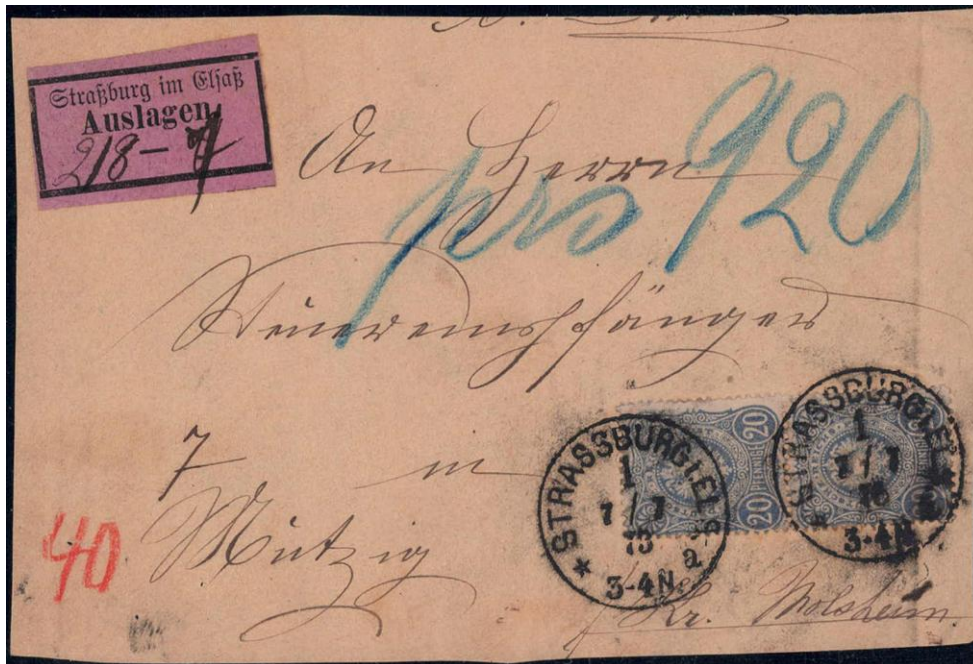 Straßburg im Elsaß
Auslagen
218-
An Herrn
pro 920
Steuerempfänger
7 in
Mutzig
40
20
20
PFENNIG
STRASSBURG i. ELS.
1
7/7
3-4N.
a
STRASSBURG i. ELS.
1
7/7
3-4N
Kr. Molsheim.